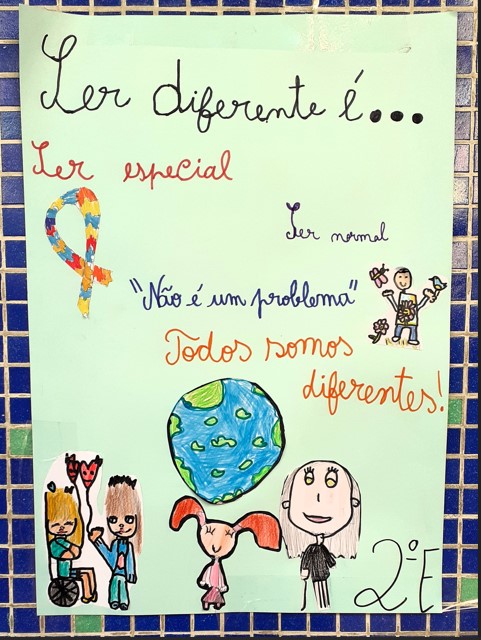 Ser diferente é...
Ser especial
Ser normal
"Não é um problema"
Todos somos
diferentes!
2ºE